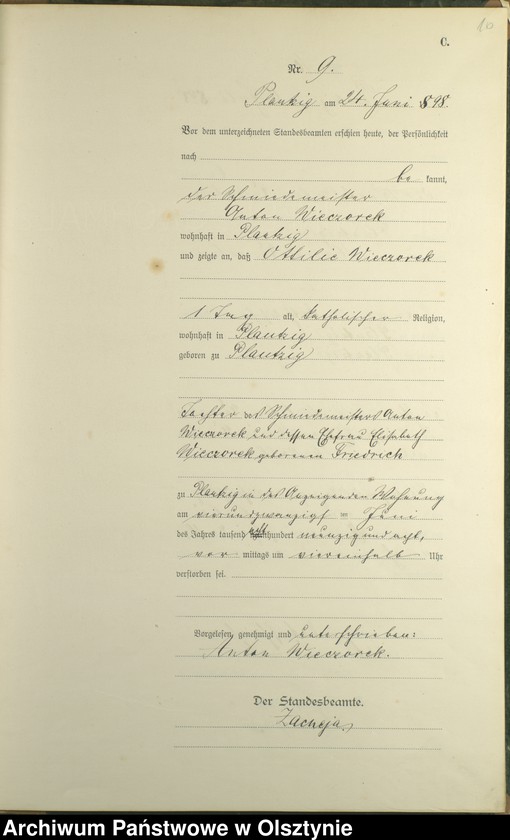 10
C.
Nr. 9.
Plautzig am 24. Juni 1898.
Vor dem unterzeichneten Standesbeamten erschien heute, der Persönlichkeit
nach
be kannt,
der Schmiedemeister
Anton Wieczorek
wohnhaft in Plautzig
und zeigte an, daß Ottilie Wieczorek
1 Tag alt, katholischer Religion,
wohnhaft in Plautzig
geboren zu Plautzig
Tochter des Schmiedemeisters Anton
Wieczorek und dessen Ehefrau Elisabeth
Wieczorek geborenen Friedrich
zu Plautzig in des Anzeigenden Wohnung
am vierundzwanzigsten Juni
des Jahres tausend achthundert neunzig und acht,
vor mittags um viereinhalb Uhr
verstorben sei.
Vorgelesen, genehmigt und unterschrieben:
Anton Wieczorek.
Der Standesbeamte.
Zacheja
Archiwum Państwowe w Olsztynie